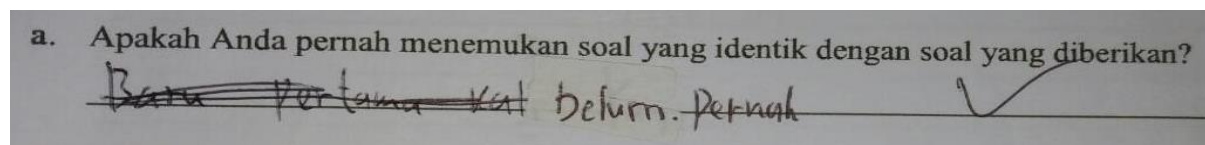 a. Apakah Anda pernah menemukan soal yang identik dengan soal yang diberikan?
Baru Pertama kal belum. Pernah